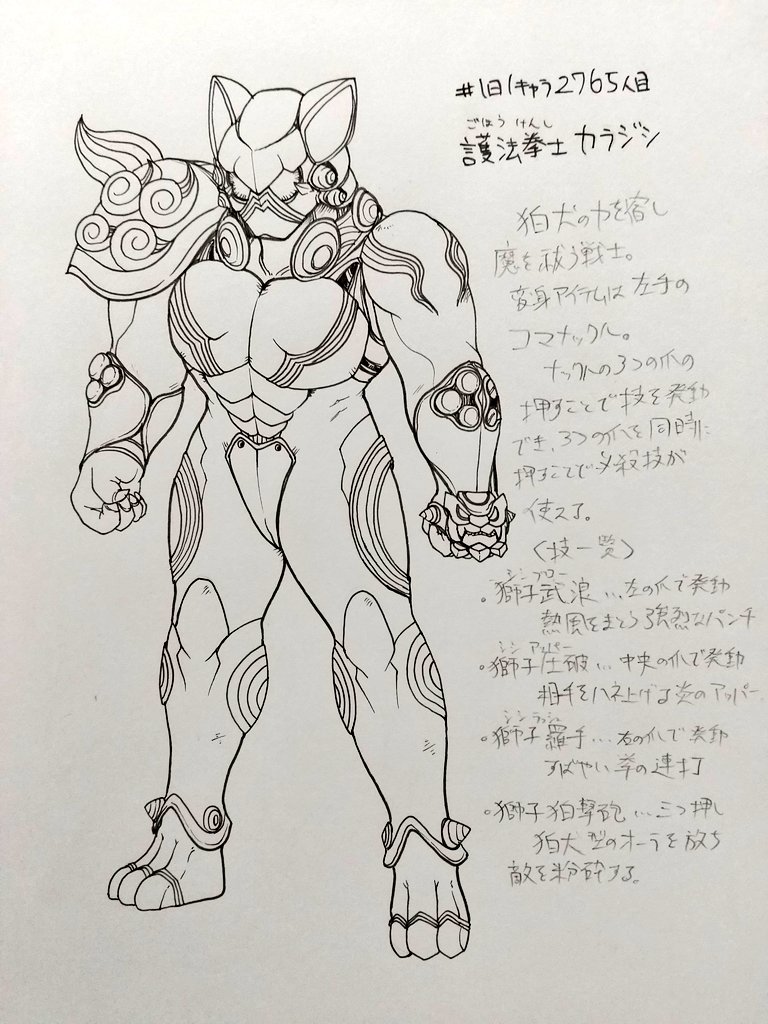 #1日1キャラ2765人目
ごほう けんし
護法拳士 カラジシ
狛犬の力を宿し
魔を祓う戦士。
変身アイテムは左手の
コマナックル。
ナックルの3つの爪の
押すことで技を発動
でき、3つの爪を同時に
押すことで必殺技が
使える。
〈技一覧〉
シンブロー
・獅子武浪…左の爪で発動
熱風をまとう強烈なパンチ
シン アッパー
・獅子圧破…中央の爪で発動
相手をハネ上げる炎のアッパー
シン ラッシュ
・獅子羅手…右の爪で発動
すばやい拳の連打
・獅子狛撃砲…三つ押し
狛犬型のオーラを放ち
敵を粉砕する。